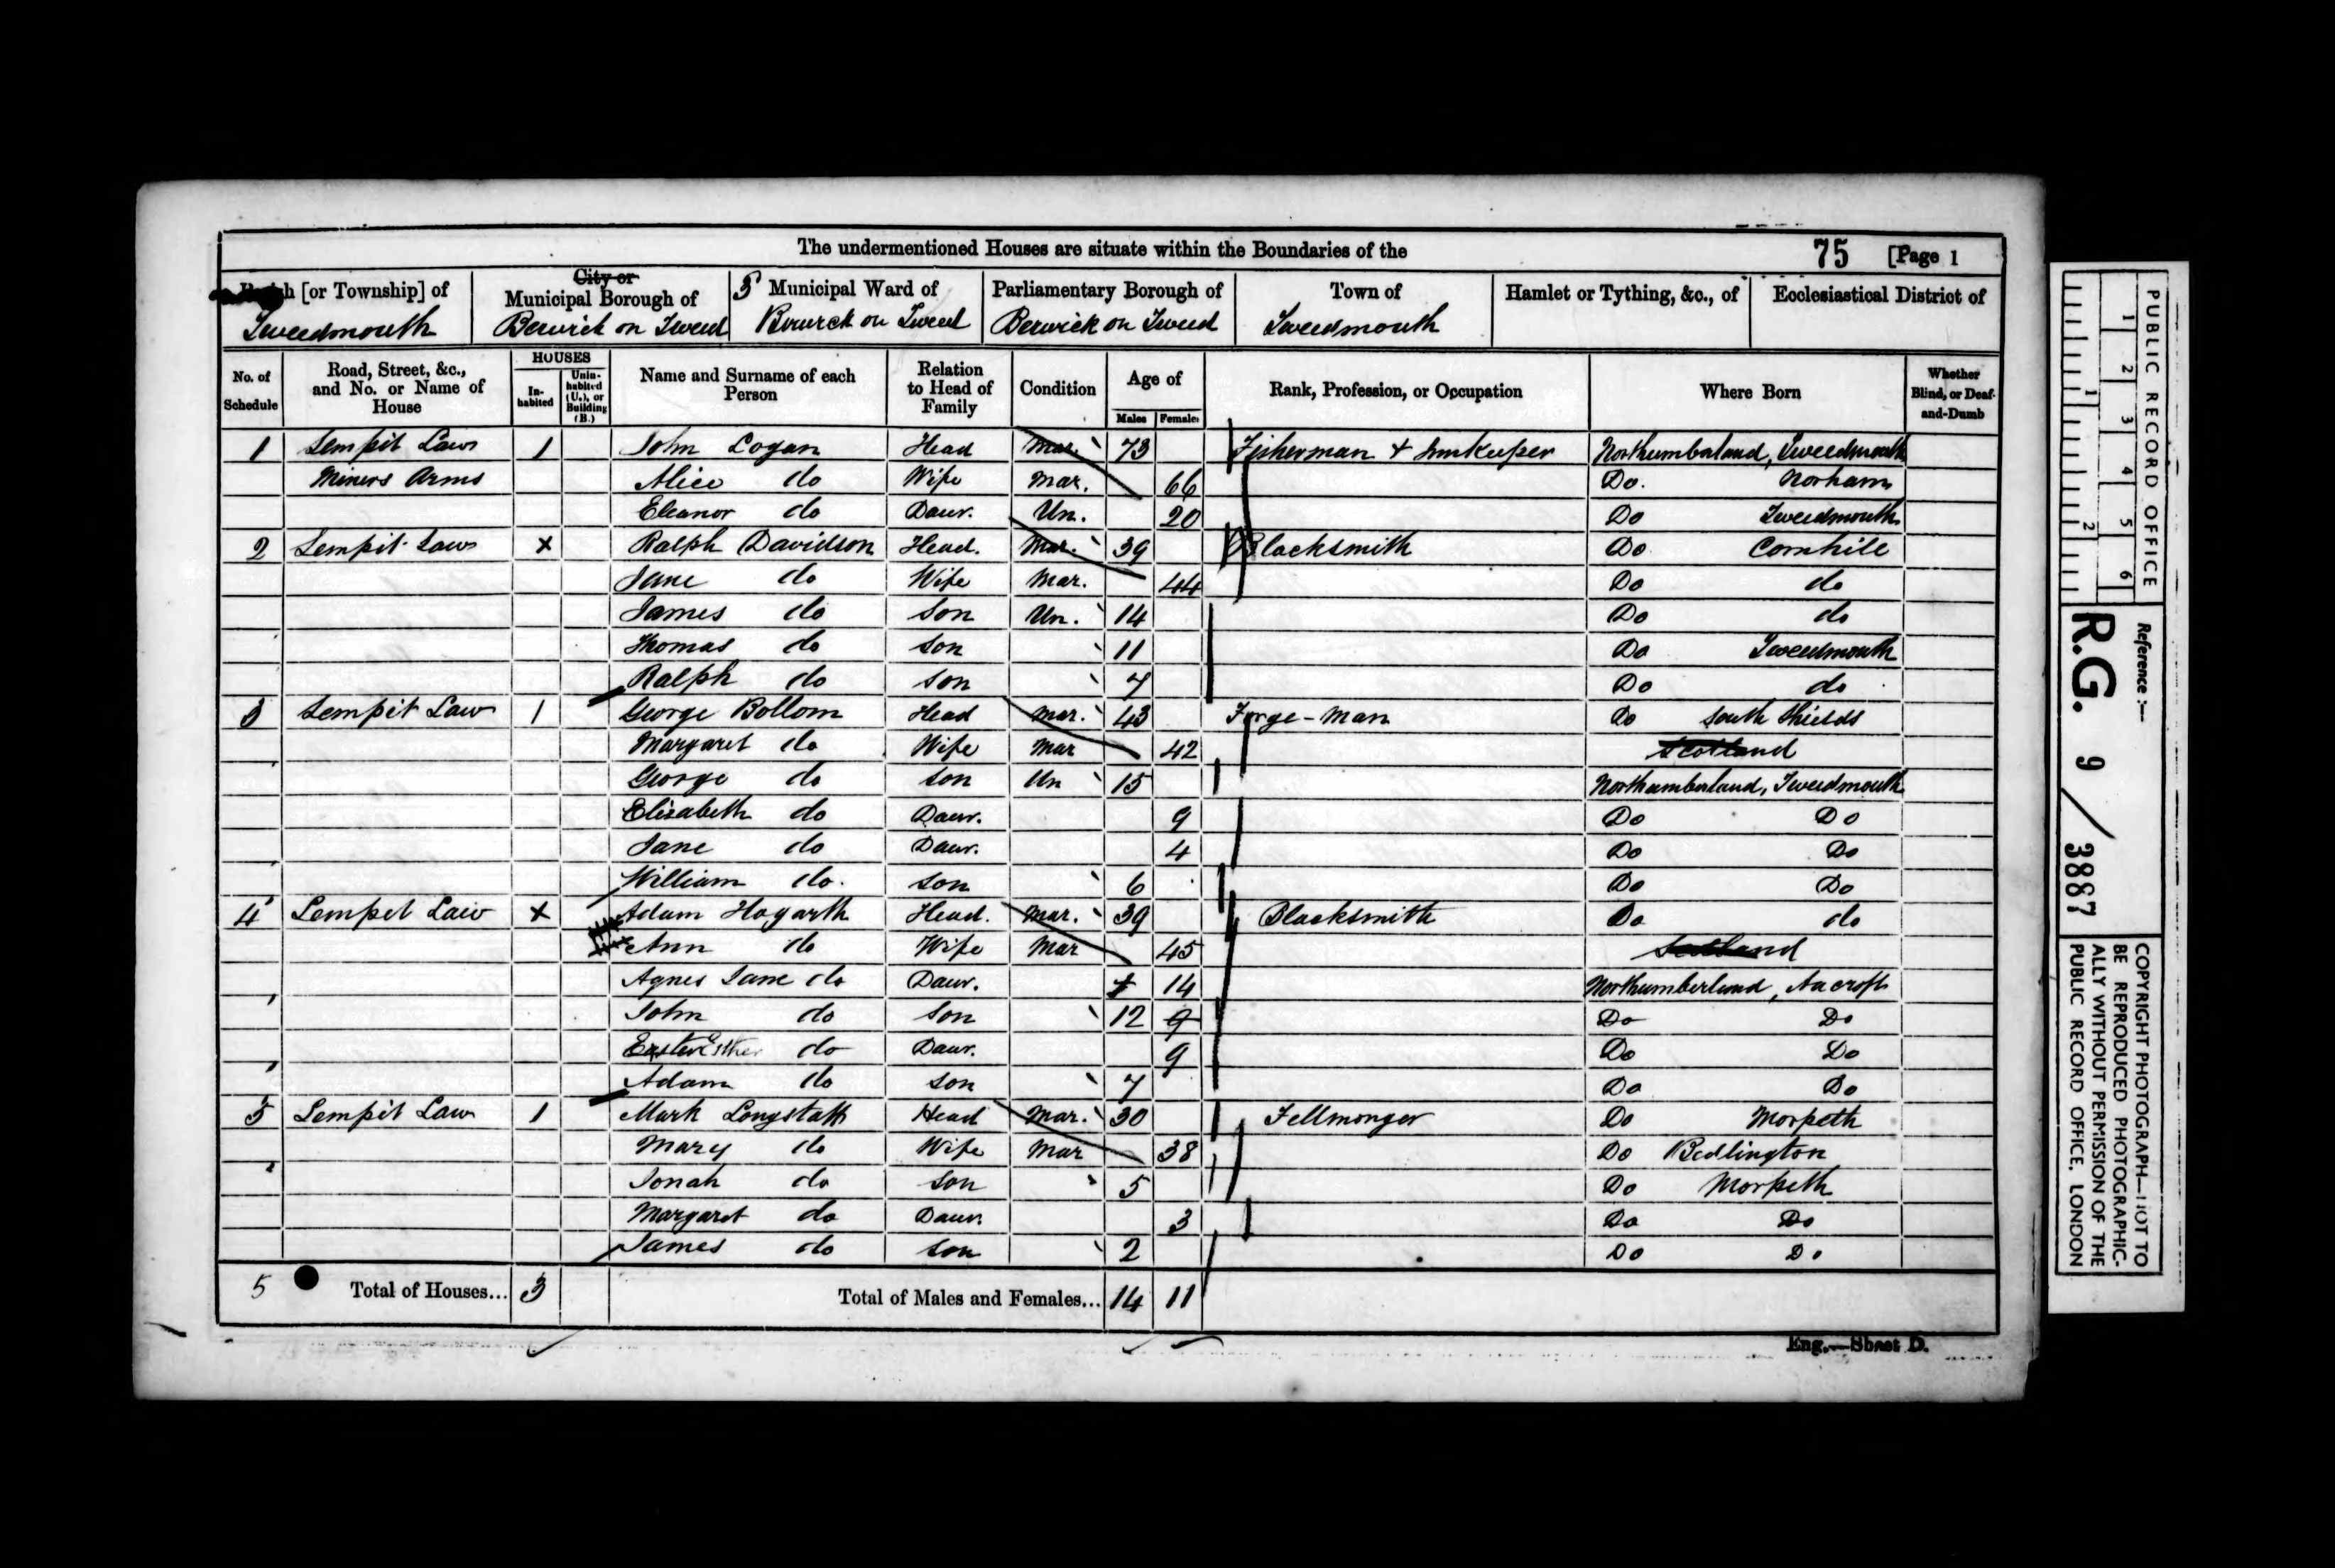 The undermentioned Houses are situate within the Boundaries of the 75 [Page 1
[or Township] of Tweedmouth
City or Municipal Borough of Berwick on Tweed
3 Municipal Ward of Berwick on Tweed
Parliamentary Borough of Berwick on Tweed
Town of Tweedmouth
Hamlet or Tything, &c., of
Ecclesiastical District of
No. of Schedule
Road, Street, &c., and No. or Name of House
HOUSES
In-habited
Unin-habited (U.), or Building (B.)
Name and Surname of each Person
Relation to Head of Family
Condition
Age of
Males Females
Rank, Profession, or Occupation
Where Born
Whether Blind, or Deaf-and-Dumb
1 Sempit Law 1 John Logan Head Mar. 73 Fisherman + Innkeeper Northumberland, Tweedmouth
Miners Arms Alice do Wife Mar. 66 Do. Norham
Eleanor do Daur. Un. 20 Do Tweedmouth
2 Sempit Law x Ralph Davidson Head. Mar. 39 Blacksmith Do Cornhill
Jane do Wife Mar. 44 Do do
James do Son Un. 14 Do do
Thomas do Son 11 Do Tweedmouth
Ralph do Son 7 Do do
3 Sempit Law 1 George Bollom Head Mar. 43 Forge-Man Do South Shields
Margaret do Wife Mar 42 Scotland
George do Son Un 15 Northumberland, Tweedmouth
Elizabeth do Daur. 9 Do Do
Jane do Daur. 4 Do Do
William do. Son 6 Do Do
4 Sempet Law x Adam Hogarth Head. Mar. 39 Blacksmith Do do
Ann do Wife Mar 45 Scotland
Agnes Jane do Daur. 14 Northumberland, Ancroft
John do Son 12 9 Do Do
Esther do Daur. 9 Do Do
Adam do Son 7 Do Do
5 Sempit Law 1 Mark Longstaff Head Mar. 30 Fellmonger Do Morpeth
Mary do Wife Mar 38 Do Bedlington
Jonah do Son 5 Do Morpeth
Margaret do Daur. 3 Do Do
James do Son 2 Do Do
5 Total of Houses... 3 Total of Males and Females... 14 11
Eng.—Sheet D.
PUBLIC RECORD OFFICE
1 2 3 4 5 6
1 2
Reference:—
R.G. 9 / 3887
COPYRIGHT PHOTOGRAPH—NOT TO
BE REPRODUCED PHOTOGRAPHIC-
ALLY WITHOUT PERMISSION OF THE
PUBLIC RECORD OFFICE, LONDON